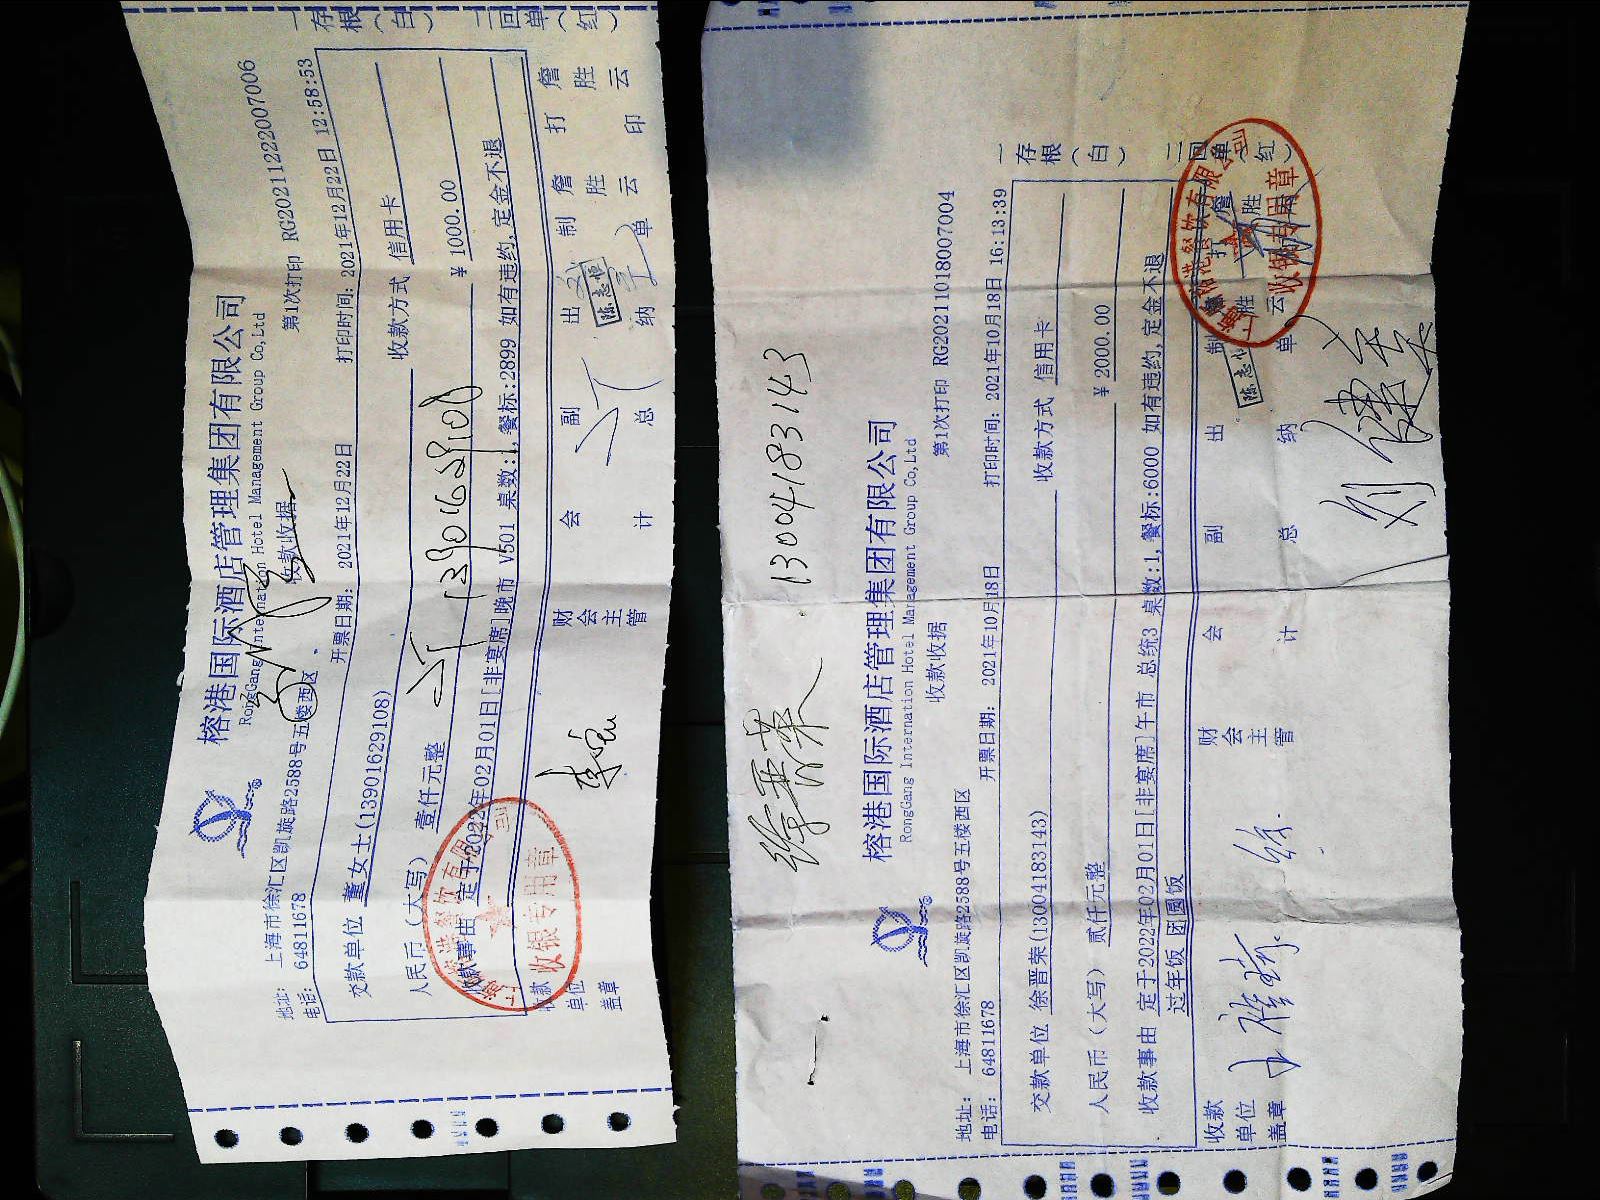 榕港国际酒店管理集团有限公司
RongGang International Hotel Management Group Co,Ltd
收款收据
第1次打印 RG20211222007006
地址: 上海市徐汇区凯旋路2588号五楼西区
电话: 64811678
开票日期: 2021年12月22日
打印时间: 2021年12月22日 12:58:53
交款单位 董女士(13901629108)
收款方式 信用卡
人民币（大写） 壹仟元整
￥ 1000.00
13901629108
收款事由 定于2022年02月01日[非宴席]晚市 V501 桌数:1, 餐标:2899 如有违约,定金不退
收款单位盖章
财会主管
会计
副总
出纳
制单
詹胜云
打印
詹胜云
一存根（白）
二回单（红）
陈志恒
收银专用章
徐晋荣
13004183143
榕港国际酒店管理集团有限公司
RongGang International Hotel Management Group Co,Ltd
收款收据
第1次打印 RG20211018007004
地址: 上海市徐汇区凯旋路2588号五楼西区
电话: 64811678
开票日期: 2021年10月18日
打印时间: 2021年10月18日 16:13:39
交款单位 徐晋荣(13004183143)
收款方式 信用卡
人民币（大写） 贰仟元整
￥ 2000.00
收款事由 定于2022年02月01日[非宴席]午市 总统3 桌数:1, 餐标:6000 如有违约,定金不退
过年饭 团圆饭
收款单位盖章
财会主管
会计
副总
出纳
制单
詹胜云
打
詹胜
一存根（白）
二回单（红）
陈志恒
收银专用章